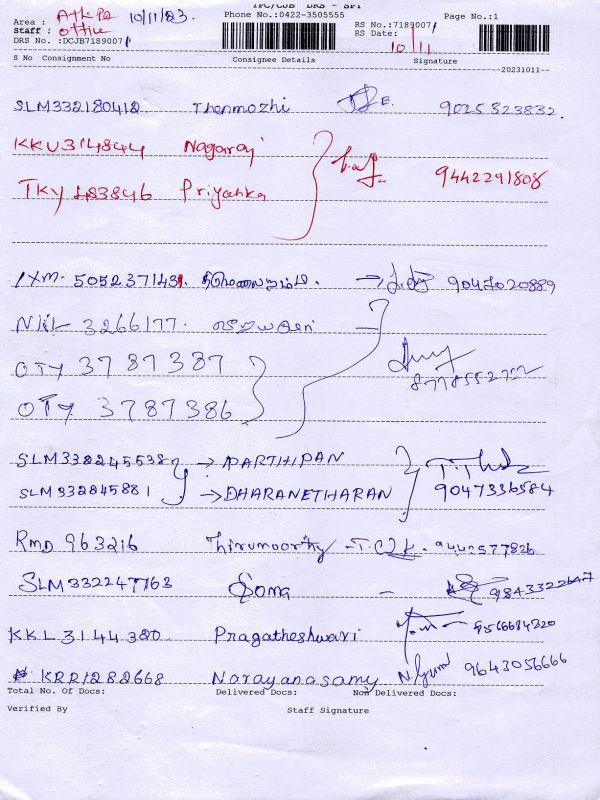 TPC/CJB DRS - SPT
Area : 10/11/23 Phone No.:0422-3505555 Page No.:1
Staff : Office RS No.:7189007
RS Date: 10/11
DRS No. :DCJB7189007
S No Consignment No Consignee Details Signature
--20231011--
SLM332180412 Thenmozhi 9025323832
KKU314844 Nagaraj
TKY 483846 Priyanka 9442291808
IXM- 5052371431. 9047020889
3266177.
OTY 3787387
OTY 3787386
SLM3322455385 → PARTHIPAN
SLM 332245881 → DHARANETHARAN 9047336584
RMD 963216 Thirumoorthy 9442577826
SLM332247763 Soma - 9843322647
KKL3144380 Pragatheshwari
KRR1282668 Narayanasamy 9643056666
Total No. Of Docs: Delivered Docs: Non Delivered Docs:
Verified By Staff Signature